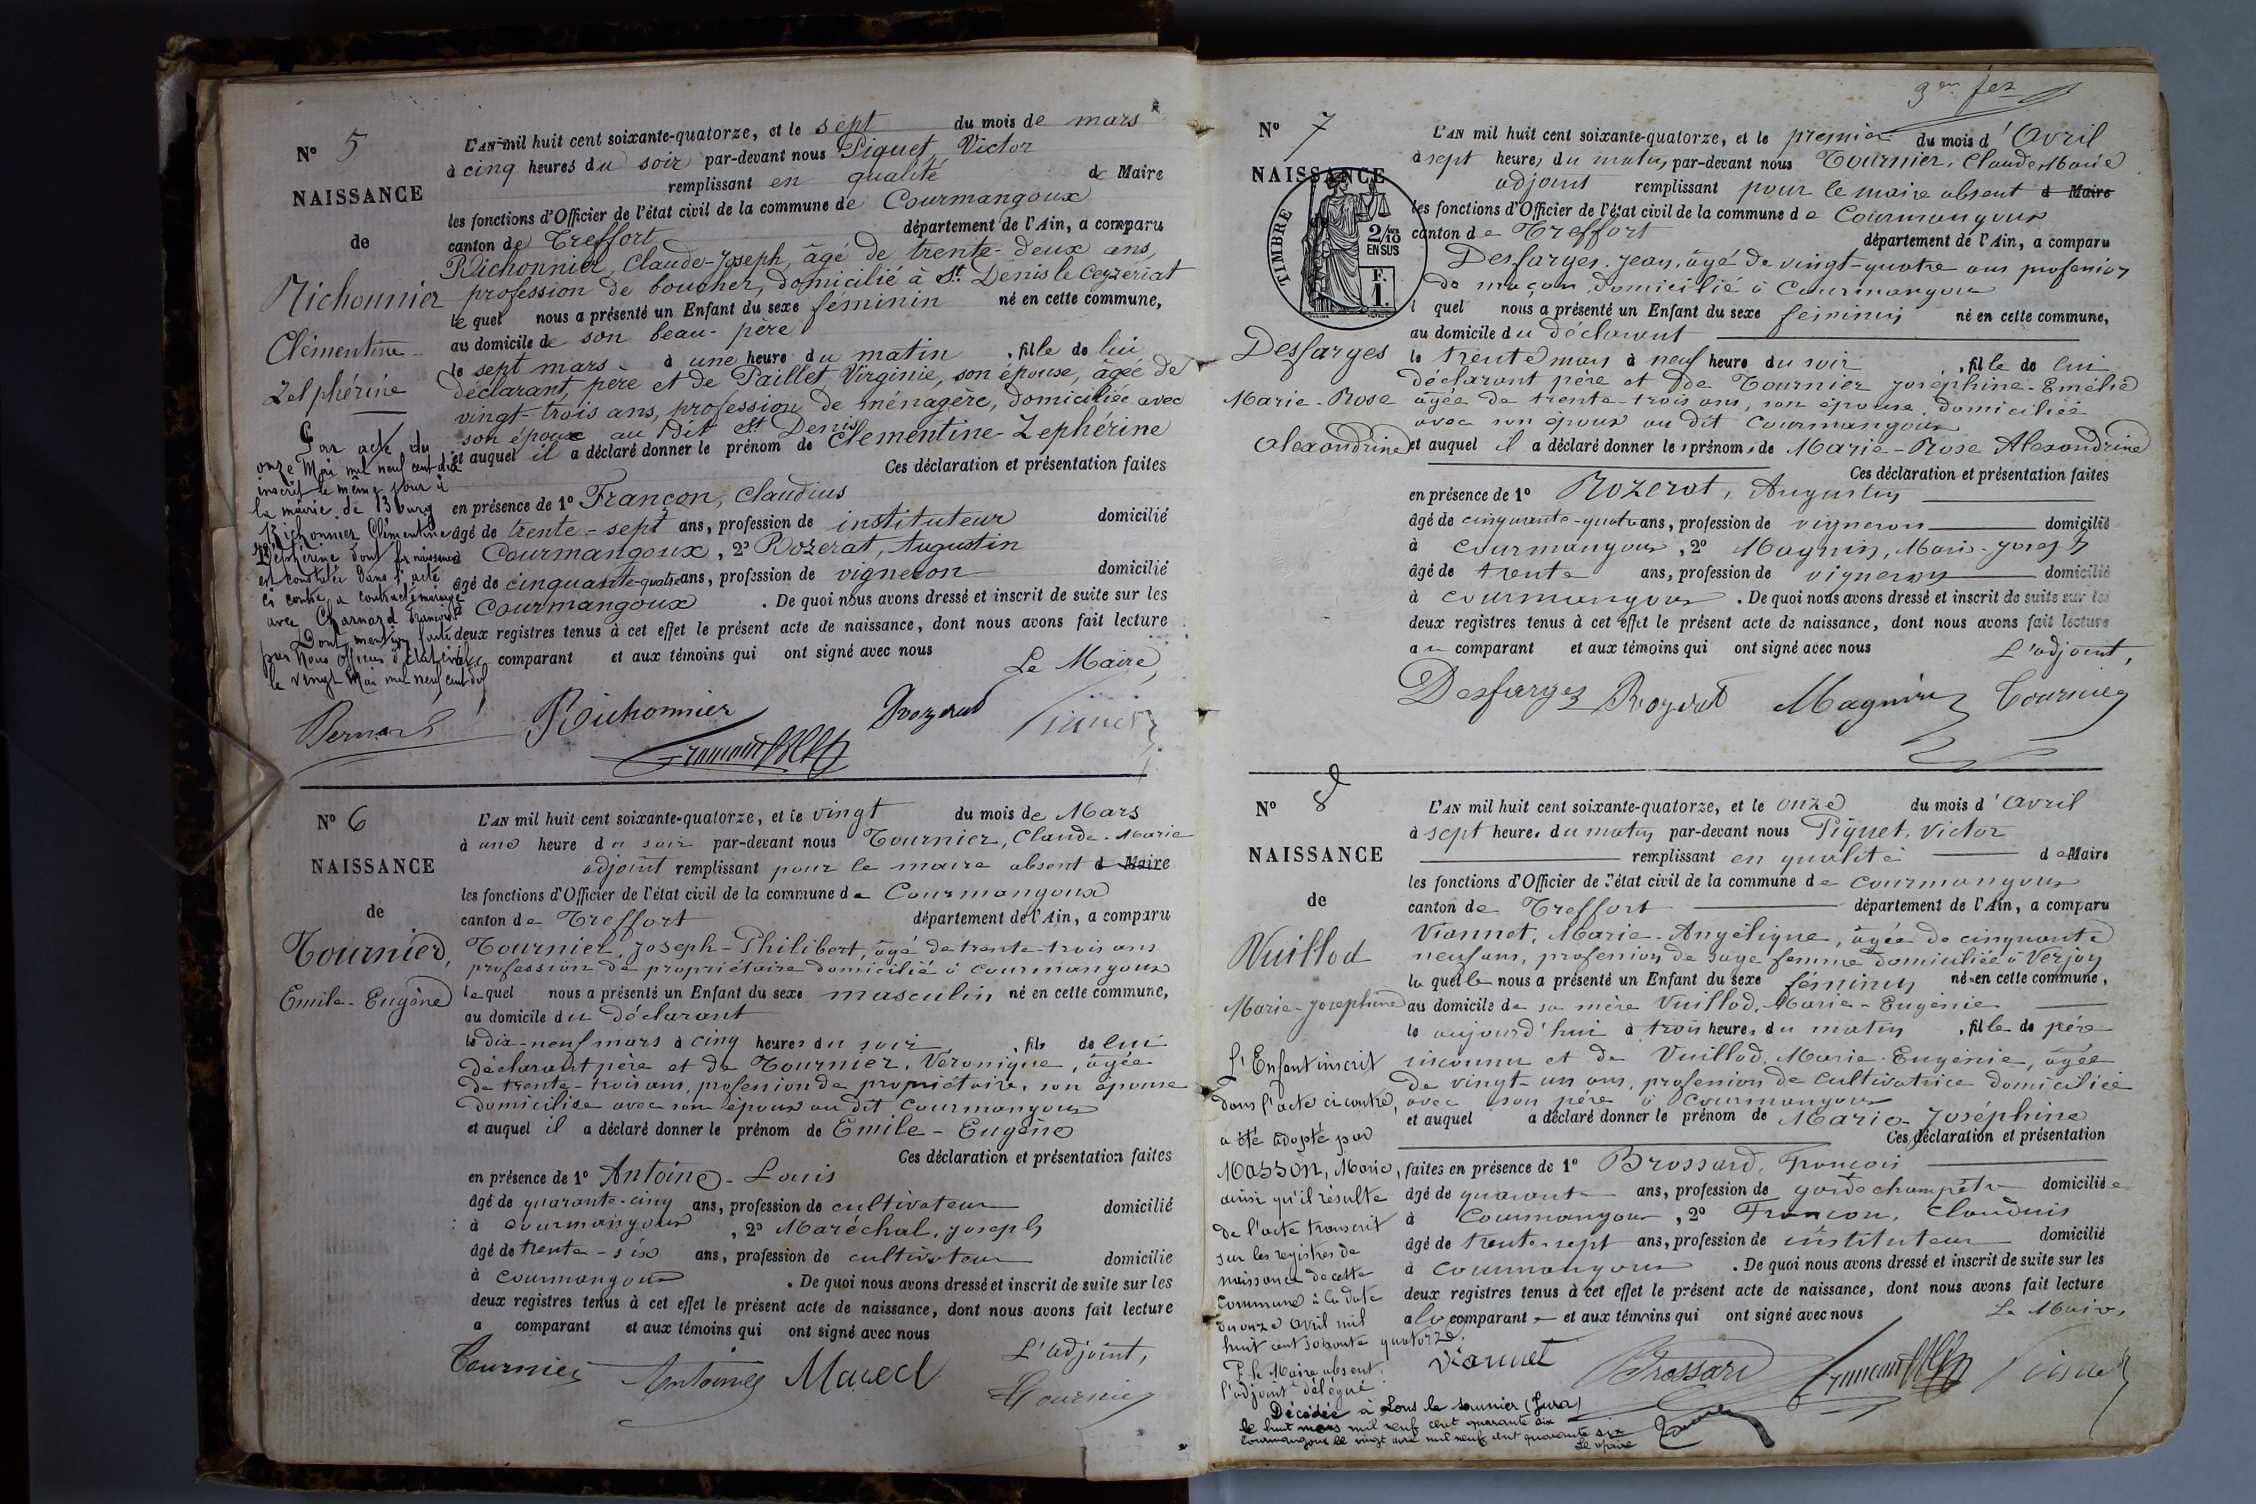 N° 5
NAISSANCE
de
Richonnier
Clémentine
Zelphérine
Par acte du
onze Mai mil neuf cent dix
inscrit le même jour à
la mairie de Bourg
Richonnier Clémentine
Zéphérine dont la naissance
est constatée dans l'acte
ci contre a contracté mariage
avec Charnard François
Dont mention faite
par Nous officier d'Etat civil
le vingt Mai mil neuf cent dix
L'AN mil huit cent soixante-quatorze, et le sept du mois de mars
à cinq heures du soir par-devant nous Piquet, Victor
remplissant en qualité de Maire
les fonctions d'Officier de l'état civil de la commune de Courmangoux
canton de Treffort département de l'Ain, a comparu
Richonnier, Claude-Joseph, âgé de trente-deux ans,
profession de boucher, domicilié à St. Denis le Ceyzeriat
lequel nous a présenté un Enfant du sexe féminin né en cette commune,
au domicile de son beau-père
le sept mars à une heure du matin, fille de lui
déclarant, père et de Paillet, Virginie, son épouse, âgée de
vingt-trois ans, profession de ménagère, domiciliée avec
son époux au dit St Denis
et auquel il a déclaré donner le prénom de Clémentine-Zephérine
Ces déclaration et présentation faites
en présence de 1° Françon, Claudius
âgé de trente-sept ans, profession de instituteur domicilié
à Courmangoux, 2° Rozerat, Augustin
âgé de cinquante-quatre ans, profession de vigneron domicilié
à Courmangoux. De quoi nous avons dressé et inscrit de suite sur les
deux registres tenus à cet effet le présent acte de naissance, dont nous avons fait lecture
aux comparant et aux témoins qui ont signé avec nous
Le Maire,
Bernard Richonnier Rozerat Piquet
N° 6
NAISSANCE
de
Tournier,
Emile-Eugène
L'AN mil huit cent soixante-quatorze, et le vingt du mois de Mars
à une heure du soir par-devant nous Tournier, Claude-Marie
adjoint remplissant pour le maire absent d Maire
les fonctions d'Officier de l'état civil de la commune de Courmangoux
canton de Treffort département de l'Ain, a comparu
Tournier, Joseph-Philibert, âgé de trente-trois ans
profession de propriétaire domicilié à Courmangoux
lequel nous a présenté un Enfant du sexe masculin né en cette commune,
au domicile du déclarant
le dix-neuf mars à cinq heures du soir, fils de lui
déclarant père et de Tournier, Véronique, âgée
de trente-trois ans, profession de propriétaire, son épouse
domiciliée avec son époux au dit Courmangoux
et auquel il a déclaré donner le prénom de Emile-Eugène
Ces déclaration et présentation faites
en présence de 1° Antoine-Louis
âgé de quarante-cinq ans, profession de cultivateur domicilié
à Courmangoux, 2° Maréchal, Joseph
âgé de trente-six ans, profession de cultivateur domicilié
à Courmangoux. De quoi nous avons dressé et inscrit de suite sur les
deux registres tenus à cet effet le présent acte de naissance, dont nous avons fait lecture
a comparant et aux témoins qui ont signé avec nous
L'adjoint,
Tournier Antoine Marecl Tournier
N° 7
NAISSANCE
de
TIMBRE
2/10
EN SUS
F.
1.
Desfarges
Marie-Rose
Alexandrine
L'AN mil huit cent soixante-quatorze, et le premier du mois d'Avril
à sept heures du matin, par-devant nous Tournier, Claude Marie
adjoint remplissant pour le maire absent d Maire
les fonctions d'Officier de l'état civil de la commune de Courmangoux
canton de Treffort département de l'Ain, a comparu
Desfarges, Jean, âgé de vingt-quatre ans profession
de maçon, domicilié à Courmangoux
lquel nous a présenté un Enfant du sexe féminin né en cette commune,
au domicile du déclarant
le trente mars à neuf heure du soir, fille de lui
déclarant père et de Tournier Joséphine-Emélie
âgée de trente-trois ans, son épouse, domiciliée
avec son époux au dit Courmangoux
et auquel il a déclaré donner les prénoms de Marie-Rose Alexandrine
Ces déclaration et présentation faites
en présence de 1° Rozerat, Augustin
âgé de cinquante-quatre ans, profession de vigneron domicilié
à Courmangoux, 2° Magnin, Marie-Joseph
âgé de trente ans, profession de vigneron domicilié
à Courmangoux. De quoi nous avons dressé et inscrit de suite sur les
deux registres tenus à cet effet le présent acte de naissance, dont nous avons fait lecture
au comparant et aux témoins qui ont signé avec nous
L'adjoint,
Desfarges Rozerat Magnin Tournier
N° 8
NAISSANCE
de
Vuillod
Marie-Joséphine
L'Enfant inscrit
dans l'acte ci contre,
a été adopté par
Masson, Marie,
ainsi qu'il résulte
de l'acte transcrit
sur les registres de
naissance de cette
commune à la date
du onze avril mil
huit cent soixante quatorze.
P. le Maire absent,
l'adjoint délégué
Décédée à Lons le Saunier (Jura)
le huit mars mil neuf cent quarante six
Courmangoux le vingt avril mil neuf cent quarante six
Le Maire
L'AN mil huit cent soixante-quatorze, et le onze du mois d'avril
à sept heures du matin, par-devant nous Piquet, Victor
remplissant en qualité de Maire
les fonctions d'Officier de l'état civil de la commune de Courmangoux
canton de Treffort département de l'Ain, a comparu
Vionnet, Marie-Angélique, âgée de cinquante
neuf ans, profession de sage femme domiciliée à Verjon
laquelle nous a présenté un Enfant du sexe féminin né en cette commune,
au domicile de sa mère Vuillod, Marie-Eugénie
le aujourd'hui à trois heures du matin, fille de père
inconnu et de Vuillod, Marie-Eugénie, âgée
de vingt-un ans, profession de cultivatrice domiciliée
avec son père à Courmangoux
et auquel a déclaré donner le prénom de Marie-Joséphine
Ces déclaration et présentation
faites en présence de 1° Brossard, François
âgé de quarante ans, profession de garde champêtre domicilié
à Courmangoux, 2° Françon, Claudius
âgé de trente-sept ans, profession de instituteur domicilié
à Courmangoux. De quoi nous avons dressé et inscrit de suite sur les
deux registres tenus à cet effet le présent acte de naissance, dont nous avons fait lecture
a la comparante et aux témoins qui ont signé avec nous
Le Maire,
Vionnet Brossard Piquet